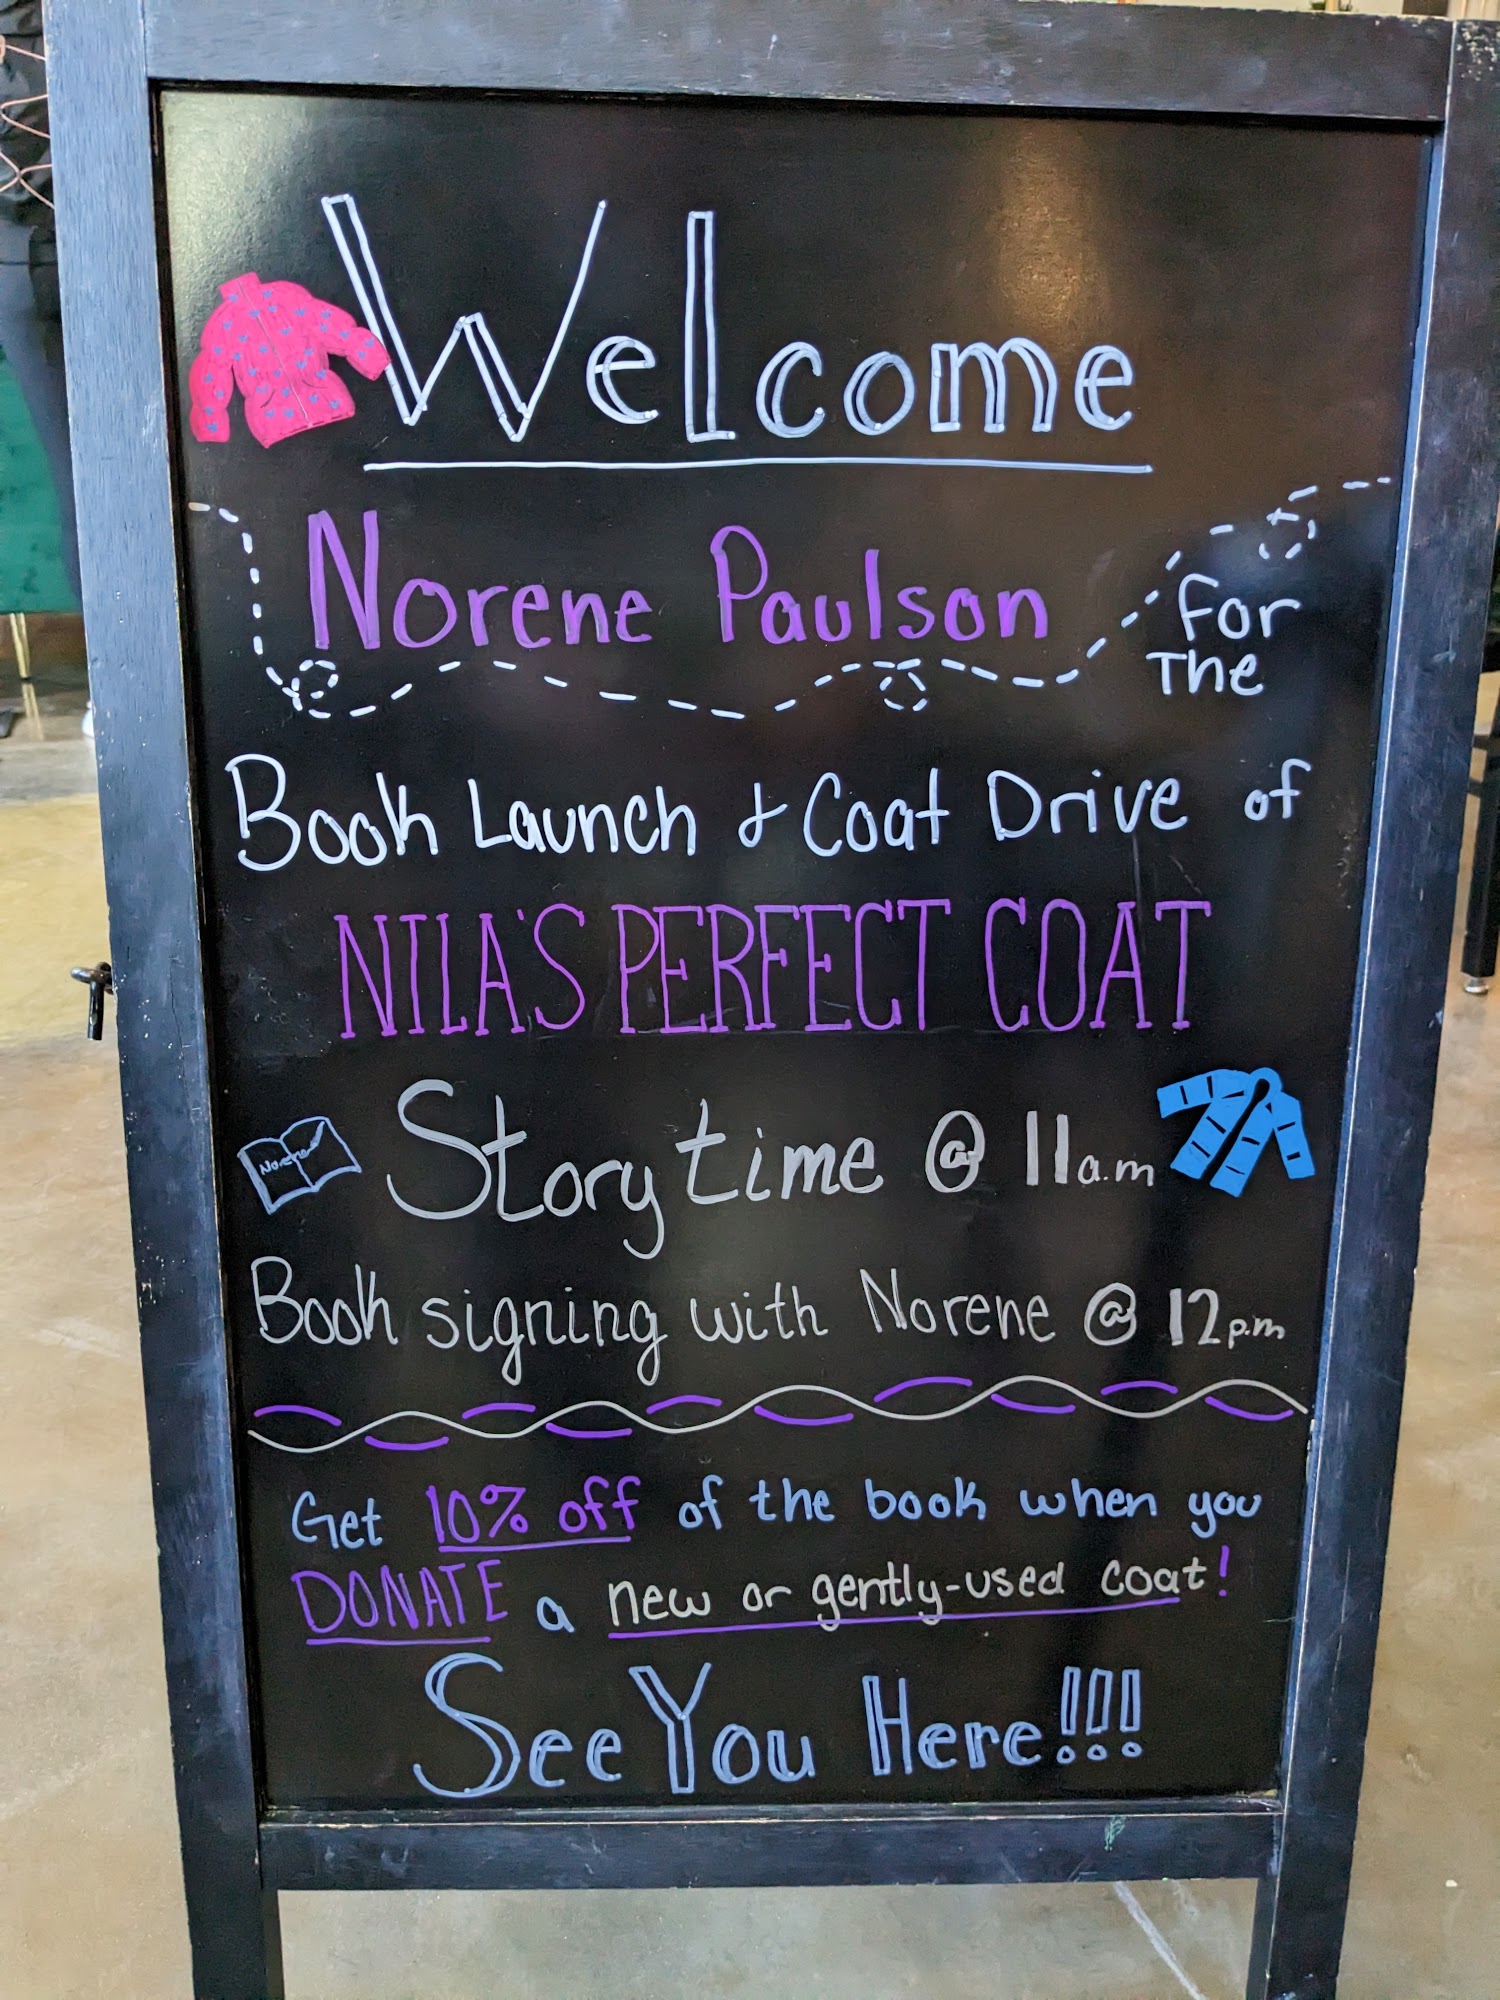 Welcome
Norene Paulson For
The
Book Launch & Coat Drive of
NILA'S PERFECT COAT
Norene
Storytime @ 11a.m
Book signing with Norene @ 12p.m
Get 10% off of the book when you
DONATE a new or gently-used coat!
See You Here!!!